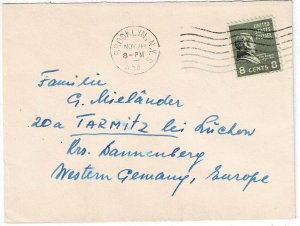 BROOKLYN, N.Y.
NOV
8-PM
UNITED STATES
POSTAGE
8 CENTS 8
Familie
G. Mieländer
20a TARMITZ bei Lüchow
Krs. Dannenberg
Western Gemany, Europe